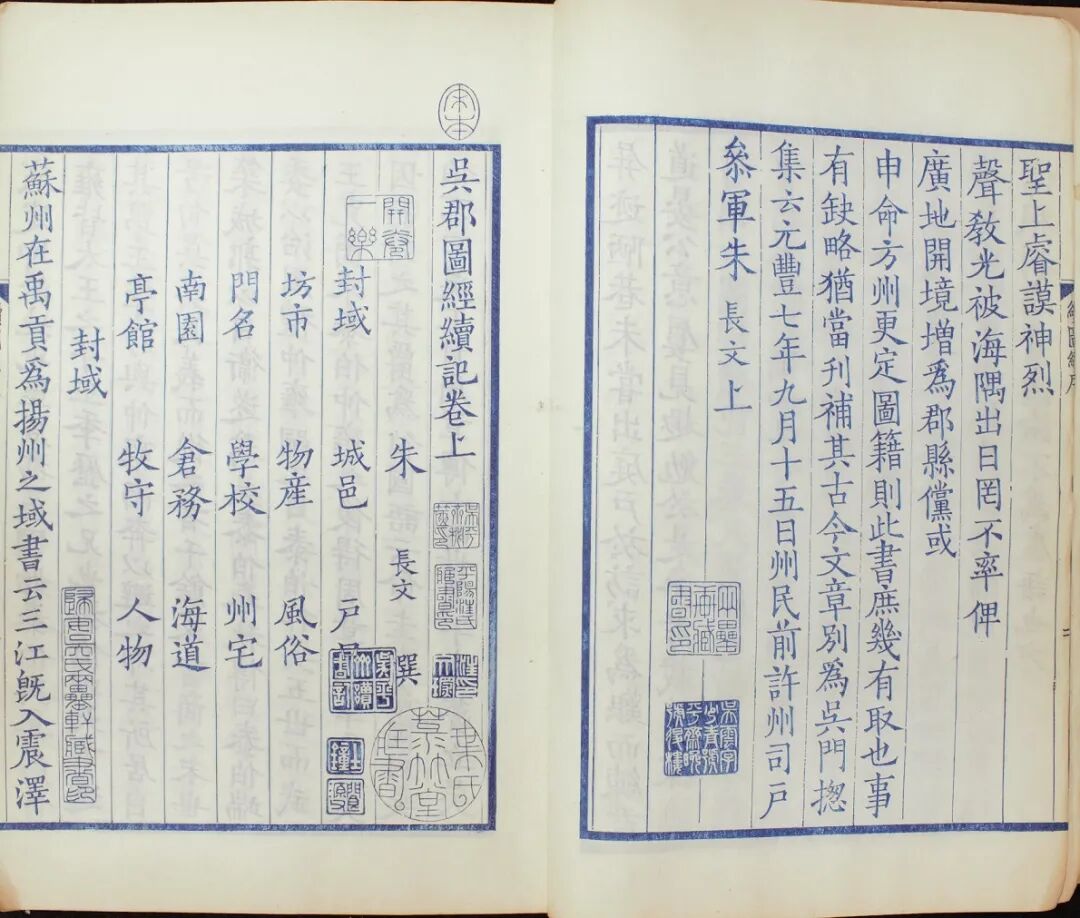 聖上睿謨神烈
聲敎光被海隅出日罔不率俾
廣地開境增為郡縣儻或
申命方州更定圖籍則此書庶幾有取也事
有缺略猶當刊補其古今文章別為吳門摠
集云元豐七年九月十五日州民前許州司戶
叅軍朱長文上
吳郡圖經續記卷上
朱長文撰
封域 城邑 戶
坊市 物產 風俗
門名 學校 州宅
南園 倉務 海道
亭館 牧守 人物
封域
蘇州在禹貢為揚州之域書云三江旣入震澤
宋本
開卷一樂
葉氏菉竹堂藏書